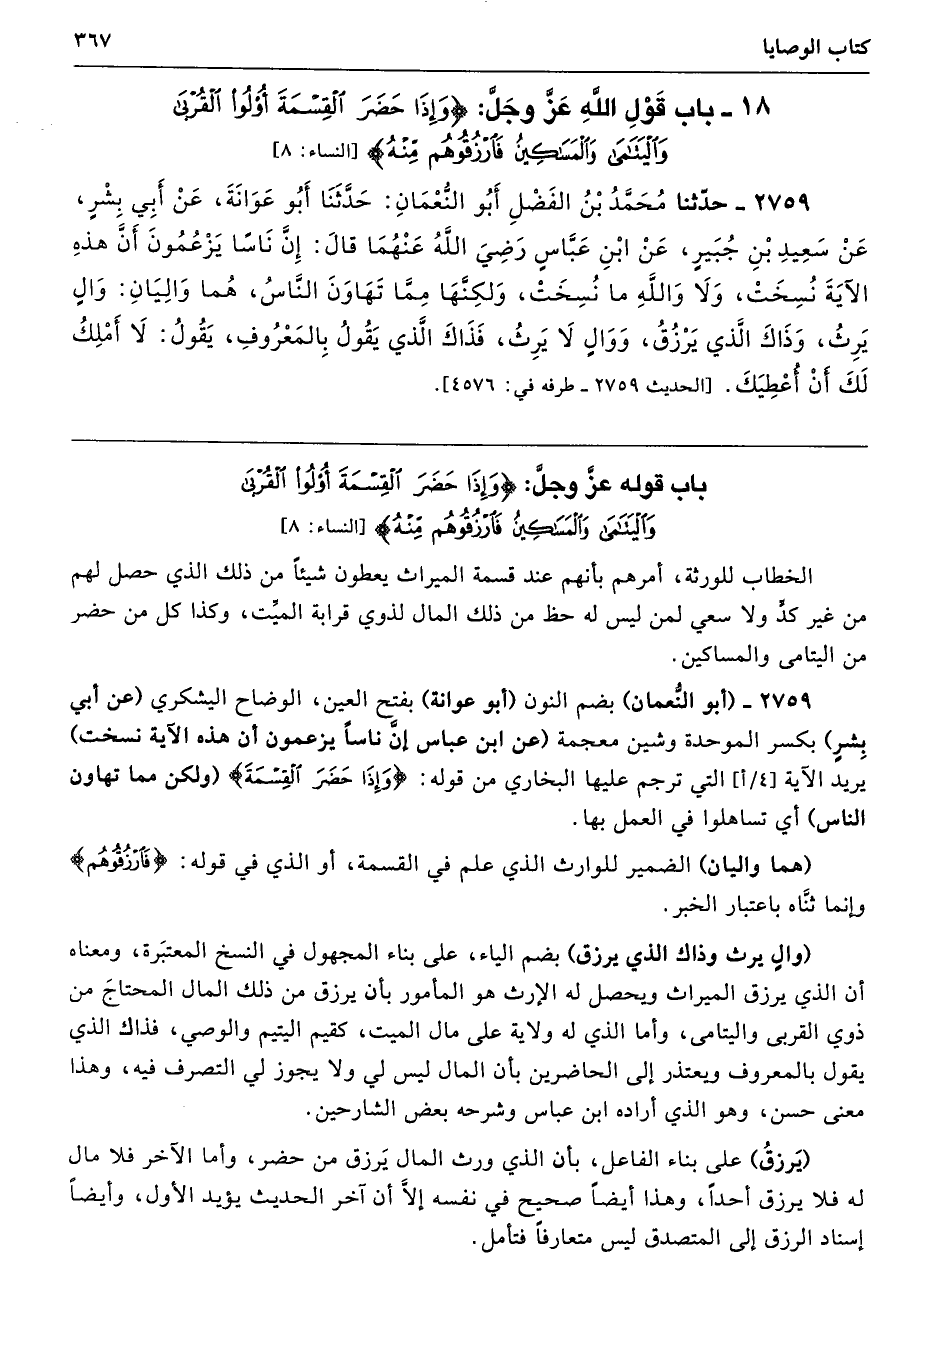 كتاب الوصايا ٣٦٧
١٨ ـ باب قَوْلِ اللَّهِ عَزَّ وجَلَّ: ﴿وَإِذَا حَضَرَ ٱلْقِسْمَةَ أُوْلُوا۟ ٱلْقُرْبَىٰ
وَٱلْيَتَـٰمَىٰ وَٱلْمَسَـٰكِينُ فَٱرْزُقُوهُم مِّنْهُ﴾ [النساء: ٨]
٢٧٥٩ ـ حدّثنا مُحَمَّدُ بْنُ الفَضْلِ أَبُو النُّعْمَانِ: حَدَّثَنَا أَبُو عَوَانَةَ، عَنْ أَبِي بِشْرٍ،
عَنْ سَعِيدِ بْنِ جُبَيرٍ، عَنْ ابْنِ عَبَّاسٍ رَضِيَ اللَّهُ عَنْهُمَا قالَ: إِنَّ نَاسًا يَزْعُمُونَ أَنَّ هذهِ
الآيَةَ نُسِخَتْ، وَلَا وَاللَّهِ ما نُسِخَتْ، وَلكِنَّهَا مِمَّا تَهَاوَنَ النَّاسُ، هُما وَالِيَانِ: وَالٍ
يَرِثُ، وَذَاكَ الَّذي يَرْزُقُ، وَوَالٍ لَا يَرِثُ، فَذَاكَ الَّذي يَقُولُ بِالمَعْرُوفِ، يَقُولُ: لَا أَمْلِكُ
لَكَ أَنْ أُعْطِيَكَ. [الحديث ٢٧٥٩ ـ طرفه في: ٤٥٧٦].
باب قوله عزَّ وجلَّ: ﴿وَإِذَا حَضَرَ ٱلْقِسْمَةَ أُوْلُوا۟ ٱلْقُرْبَىٰ
وَٱلْيَتَـٰمَىٰ وَٱلْمَسَـٰكِينُ فَٱرْزُقُوهُم مِّنْهُ﴾ [النساء: ٨]
الخطاب للورثة، أمرهم بأنهم عند قسمة الميراث يعطون شيئاً من ذلك الذي حصل لهم
من غير كدٍّ ولا سعي لمن ليس له حظ من ذلك المال لذوي قرابة الميِّت، وكذا كل من حضر
من اليتامى والمساكين.
٢٧٥٩ ـ (أبو النُّعمان) بضم النون (أبو عوانة) بفتح العين، الوضاح اليشكري (عن أبي
بِشرٍ) بكسر الموحدة وشين معجمة (عن ابن عباس إنَّ ناساً يزعمون أن هذه الآية نسخت)
يريد الآية [٤/أ] التي ترجم عليها البخاري من قوله: ﴿وَإِذَا حَضَرَ ٱلْقِسْمَةَ﴾ (ولكن مما تهاون
الناس) أي تساهلوا في العمل بها.
(هما واليان) الضمير للوارث الذي علم في القسمة، أو الذي في قوله: ﴿فَٱرْزُقُوهُم﴾
وإنما ثنَّاه باعتبار الخبر.
(والٍ يرث وذاك الذي يرزق) بضم الياء، على بناء المجهول في النسخ المعتبَرة، ومعناه
أن الذي يرزق الميراث ويحصل له الإرث هو المأمور بأن يرزق من ذلك المال المحتاجَ من
ذوي القربى واليتامى، وأما الذي له ولاية على مال الميت، كقيم اليتيم والوصي، فذاك الذي
يقول بالمعروف ويعتذر إلى الحاضرين بأن المال ليس لي ولا يجوز لي التصرف فيه، وهذا
معنى حسن، وهو الذي أراده ابن عباس وشرحه بعض الشارحين.
(يَرزقُ) على بناء الفاعل، بأن الذي ورث المال يَرزق من حضر، وأما الآخر فلا مال
له فلا يرزق أحداً، وهذا أيضاً صحيح في نفسه إلاَّ أن آخر الحديث يؤيد الأول، وأيضاً
إسناد الرزق إلى المتصدق ليس متعارفاً فتأمل.